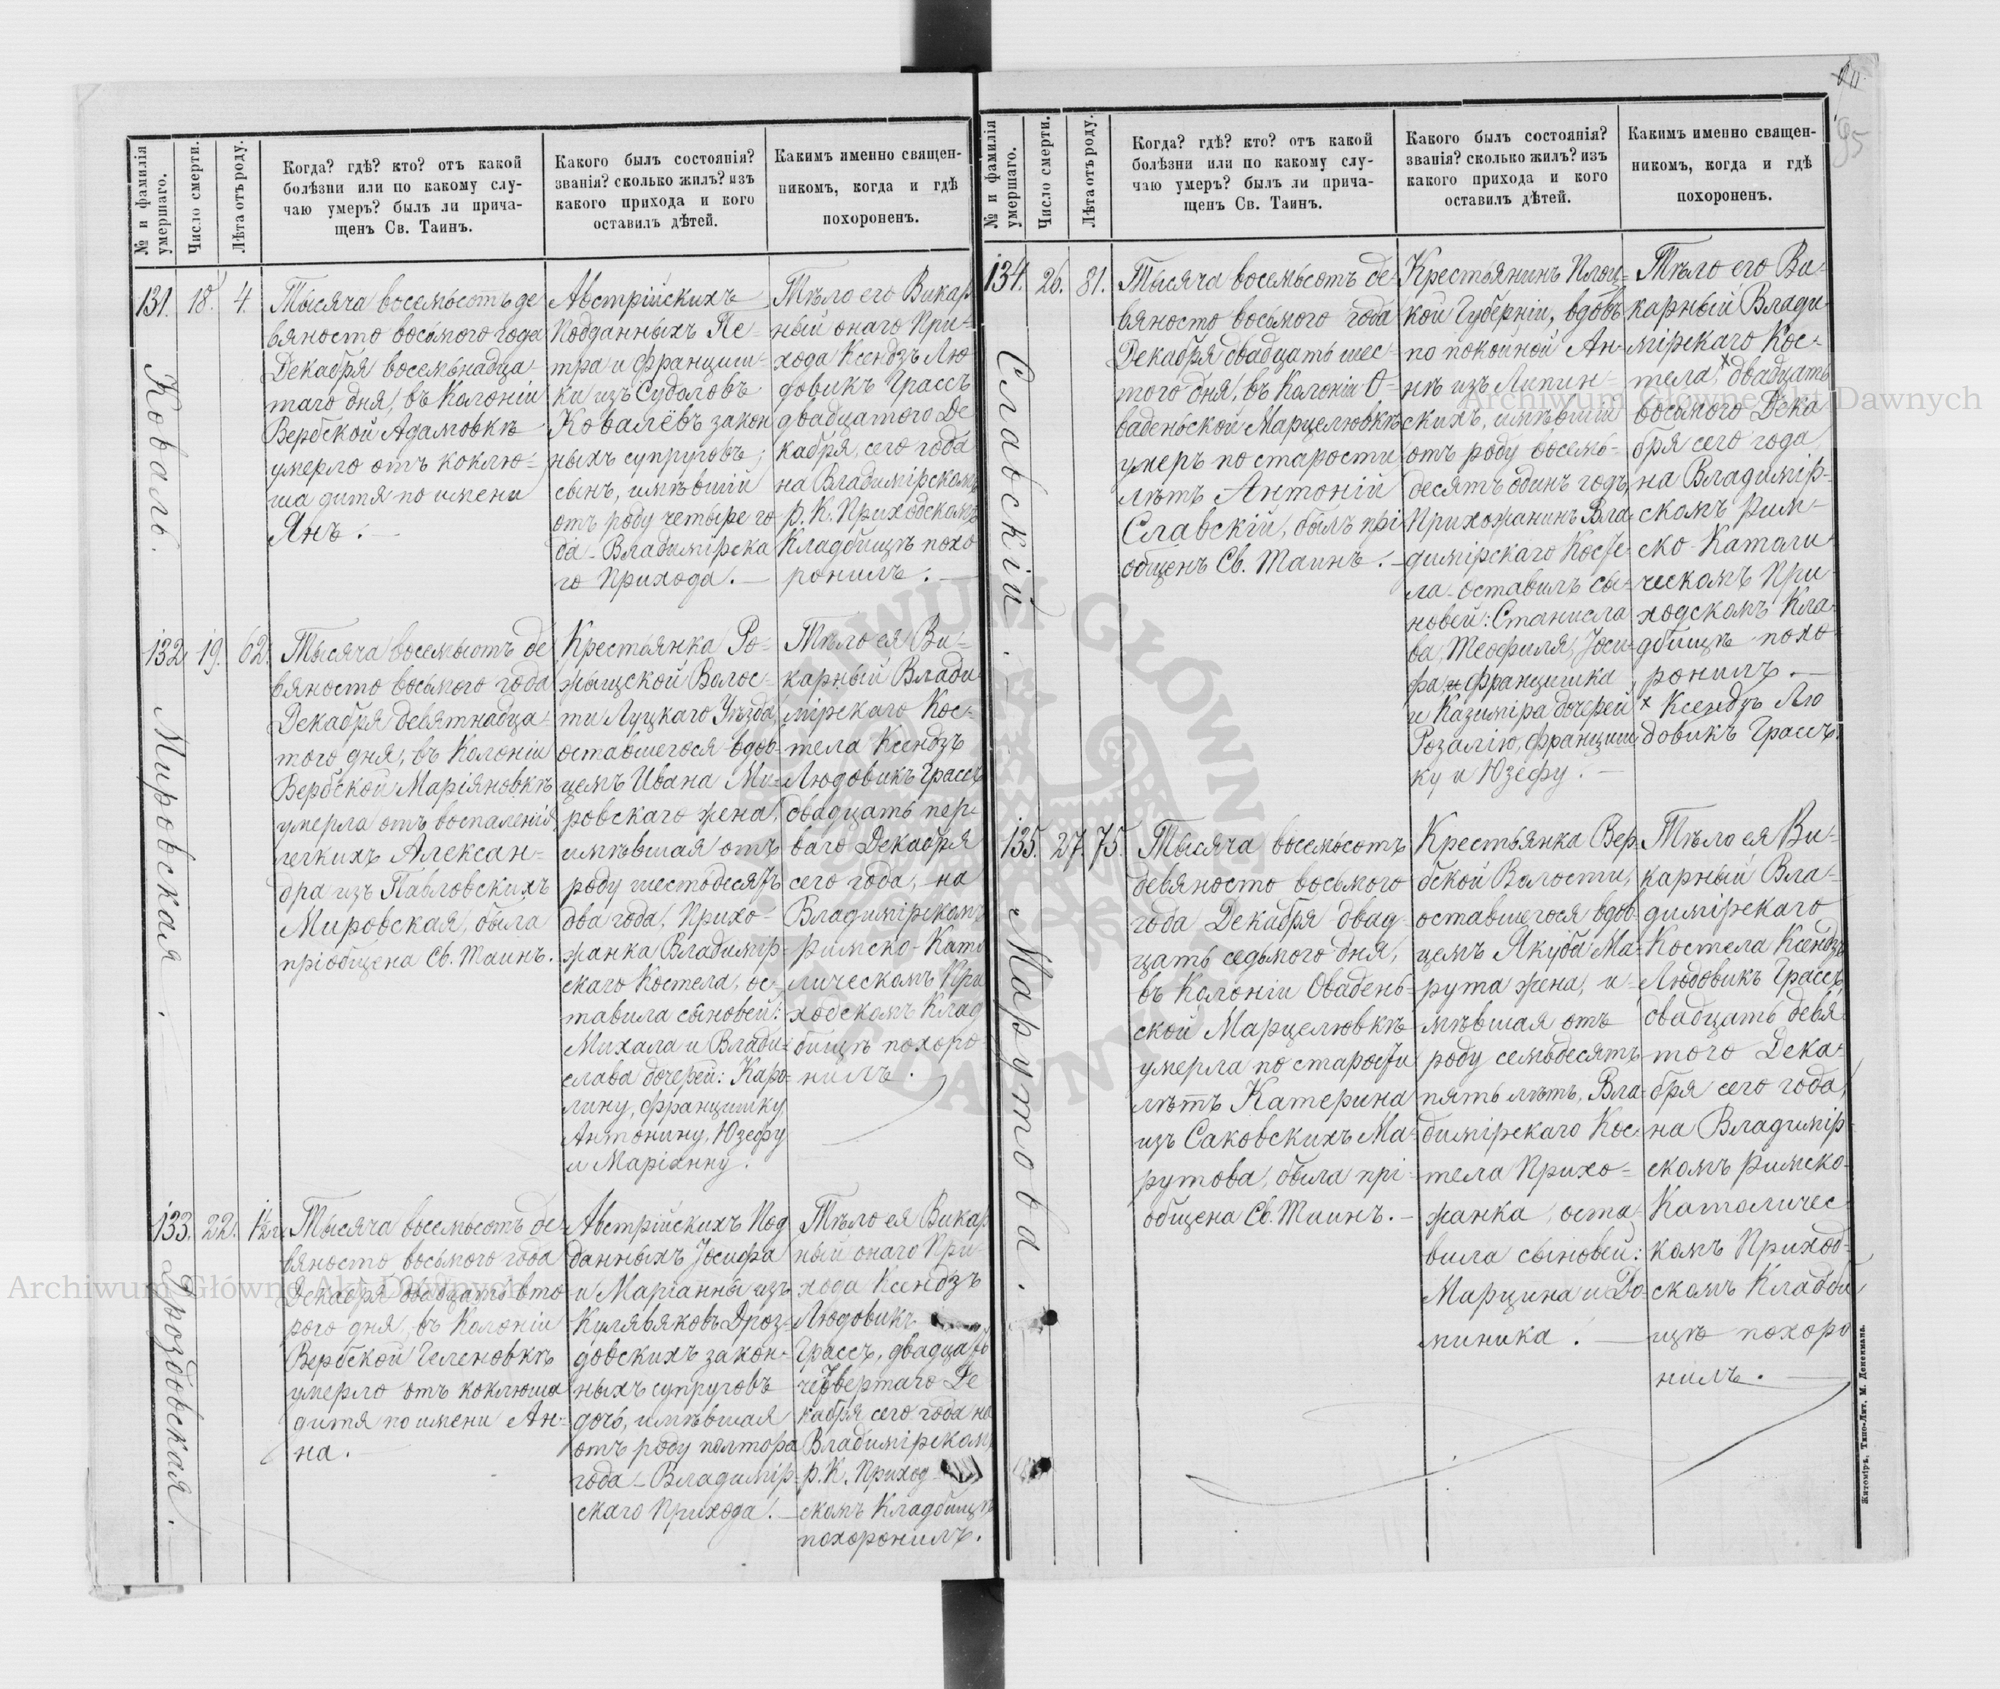 № и фамилія умершаго.
Число смерти.
Лѣта отъ роду.
Когда? гдѣ? кто? отъ какой
болѣзни или по какому слу-
чаю умеръ? былъ ли прича-
щенъ Св. Таинъ.
Какого былъ состоянія?
званія? сколько жилъ? изъ
какого прихода и кого
оставилъ дѣтей.
Какимъ именно священ-
никомъ, когда и гдѣ
похороненъ.
131.
Коваль.
18.
4.
Тысяча восемьсотъ де
вяносто восьмого года
Декабря восемьнадца-
таго дня, въ Колоніи
Вербской Адамовкѣ
умерло отъ коклю-
ша дитя по имени
Янъ. —
Австрійскихъ
Подданныхъ Пе-
тра и Франциш-
ки изъ Судоловъ
Ковалёвъ закон
ныхъ супруговъ,
сынъ, имѣвшій
отъ роду четыре го
да – Владимірска
го Прихода. —
Тѣло его Викар
ный онаго При-
хода Ксендзъ Лю
довикъ Грассъ
двадцатого Де
кабря, сего года
на Владимірскомъ
р. К. Приходскомъ
Кладбищѣ похо
ронилъ. —
132.
Мировская.
19.
62.
Тысяча восемьсотъ де
вяносто восьмого года
Декабря девятнадца-
того дня, въ Колоніи
Вербской Маріяновкѣ
умерла отъ воспаленія
легкихъ Алексан-
дра изъ Павловскихъ
Мировская, была
пріобщена Св. Таинъ.
Крестьянка Ро-
жыщской Волос-
ти Луцкаго Уѣзда,
оставшегося вдов-
цемъ Ивана Ми-
ровскаго жена,
имѣвшая отъ
роду шестьдесятъ
два года, Прихо-
жанка Владимір-
скаго Костела, ос-
тавила сыновей:
Михала и Влади-
слава дочерей: Каро-
лину, Францишку
Антонину, Юзефу
и Маріянну.
Тѣло ея Ви-
карный Влади
мірскаго Кос-
тела Ксендзъ
Людовикъ Грассъ
двадцать пер-
ваго Декабря
сего года, на
Владимірскомъ
римско-Като
лическомъ При
ходскомъ Клад
бищѣ похоро-
нилъ.
133.
Дроздовская.
22.
1½ г.
Тысяча восемьсотъ де
вяносто восьмого года
Декабря двадцать вто
рого дня, въ Колоніи
Вербской Геленовкѣ
умерло отъ коклюша
дитя по имени Ан-
на. —
Австрійскихъ Под
данныхъ Іосифа
и Маріанны изъ
Кулявяковъ Дроз-
довскихъ закон-
ныхъ супруговъ
дочь, имѣвшая
отъ роду полтора
года – Владимір-
скаго Прихода. —
Тѣло ея Викар
ный онаго При-
хода Ксендзъ
Людовикъ
Грассъ, двадцать
четвертаго Де
кабря сего года на
Владимірскомъ
р. К. Приход-
скомъ Кладбищѣ
похоронилъ.
95
№ и фамилія умершаго.
Число смерти.
Лѣта отъ роду.
Когда? гдѣ? кто? отъ какой
болѣзни или по какому слу-
чаю умеръ? былъ ли прича-
щенъ Св. Таинъ.
Какого былъ состоянія?
званія? сколько жилъ? изъ
какого прихода и кого
оставилъ дѣтей.
Какимъ именно священ-
никомъ, когда и гдѣ
похороненъ.
134.
Славскій.
26.
81.
Тысяча восемьсотъ де-
вяносто восьмого года
Декабря двадцать шес-
того дня, въ Колоніи О-
ваденьской Марцелювкѣ
умеръ по старости
лѣтъ Антоній
Славскій, былъ прі
общенъ Св. Таинъ. —
Крестьянинъ Плоц-
кой Губерніи, вдовъ
по покойной Ан-
нѣ изъ Липин-
скихъ, имѣвшій
отъ роду восемь-
десятъ одинъ годъ,
Прихожанинъ Вла-
димірскаго Косте-
ла – оставилъ сы-
новей: Станисла
ва, Теофиля, Іоси-
фа, Францишка
и Казиміра дочерей
Розалію, Францишку
ку и Юзефу. —
Тѣло его Ви-
карный Влади-
мірскаго Кос-
тела, × двадцать
восьмого Дека
бря сего года
на Владимір-
скомъ Рим-
ско-Католи
ческомъ При-
ходскомъ Кла-
дбищѣ похо-
ронилъ. —
× Ксендзъ Лю
довикъ Грассъ.
135.
Марутова.
27.
75.
Тысяча восемьсотъ
девяносто восьмого
года Декабря двад-
цать седьмого дня,
въ Колоніи Овадень-
ской Марцелювкѣ
умерла по старости
лѣтъ Катерина
изъ Саковскихъ Ма-
рутова, была прі-
общена Св. Таинъ. —
Крестьянка Вер-
бской Волости,
оставшегося вдов-
цемъ Якуба Ма-
рута жена, и-
мѣвшая отъ
роду семьдесятъ
пять лѣтъ, Вла-
димірскаго Кос-
тела Прихо-
жанка, оста-
вила сыновей:
Марцина и До-
миника. —
Тѣло ея Ви-
карный Вла-
димірскаго
Костела Ксендзъ
Людовикъ Грассъ,
двадцать девя
того Дека-
бря сего года,
на Владимір
скомъ римско-
Католичес-
комъ Приход-
скомъ Кладби
щѣ похоро
нилъ. —
Житоміръ, Типо-Лит. М. Дененмана.
Archiwum Główne Akt Dawnych
Archiwum Główne Akt Dawnych
ARCHIWUM GŁÓWNE AKT DAWNYCH